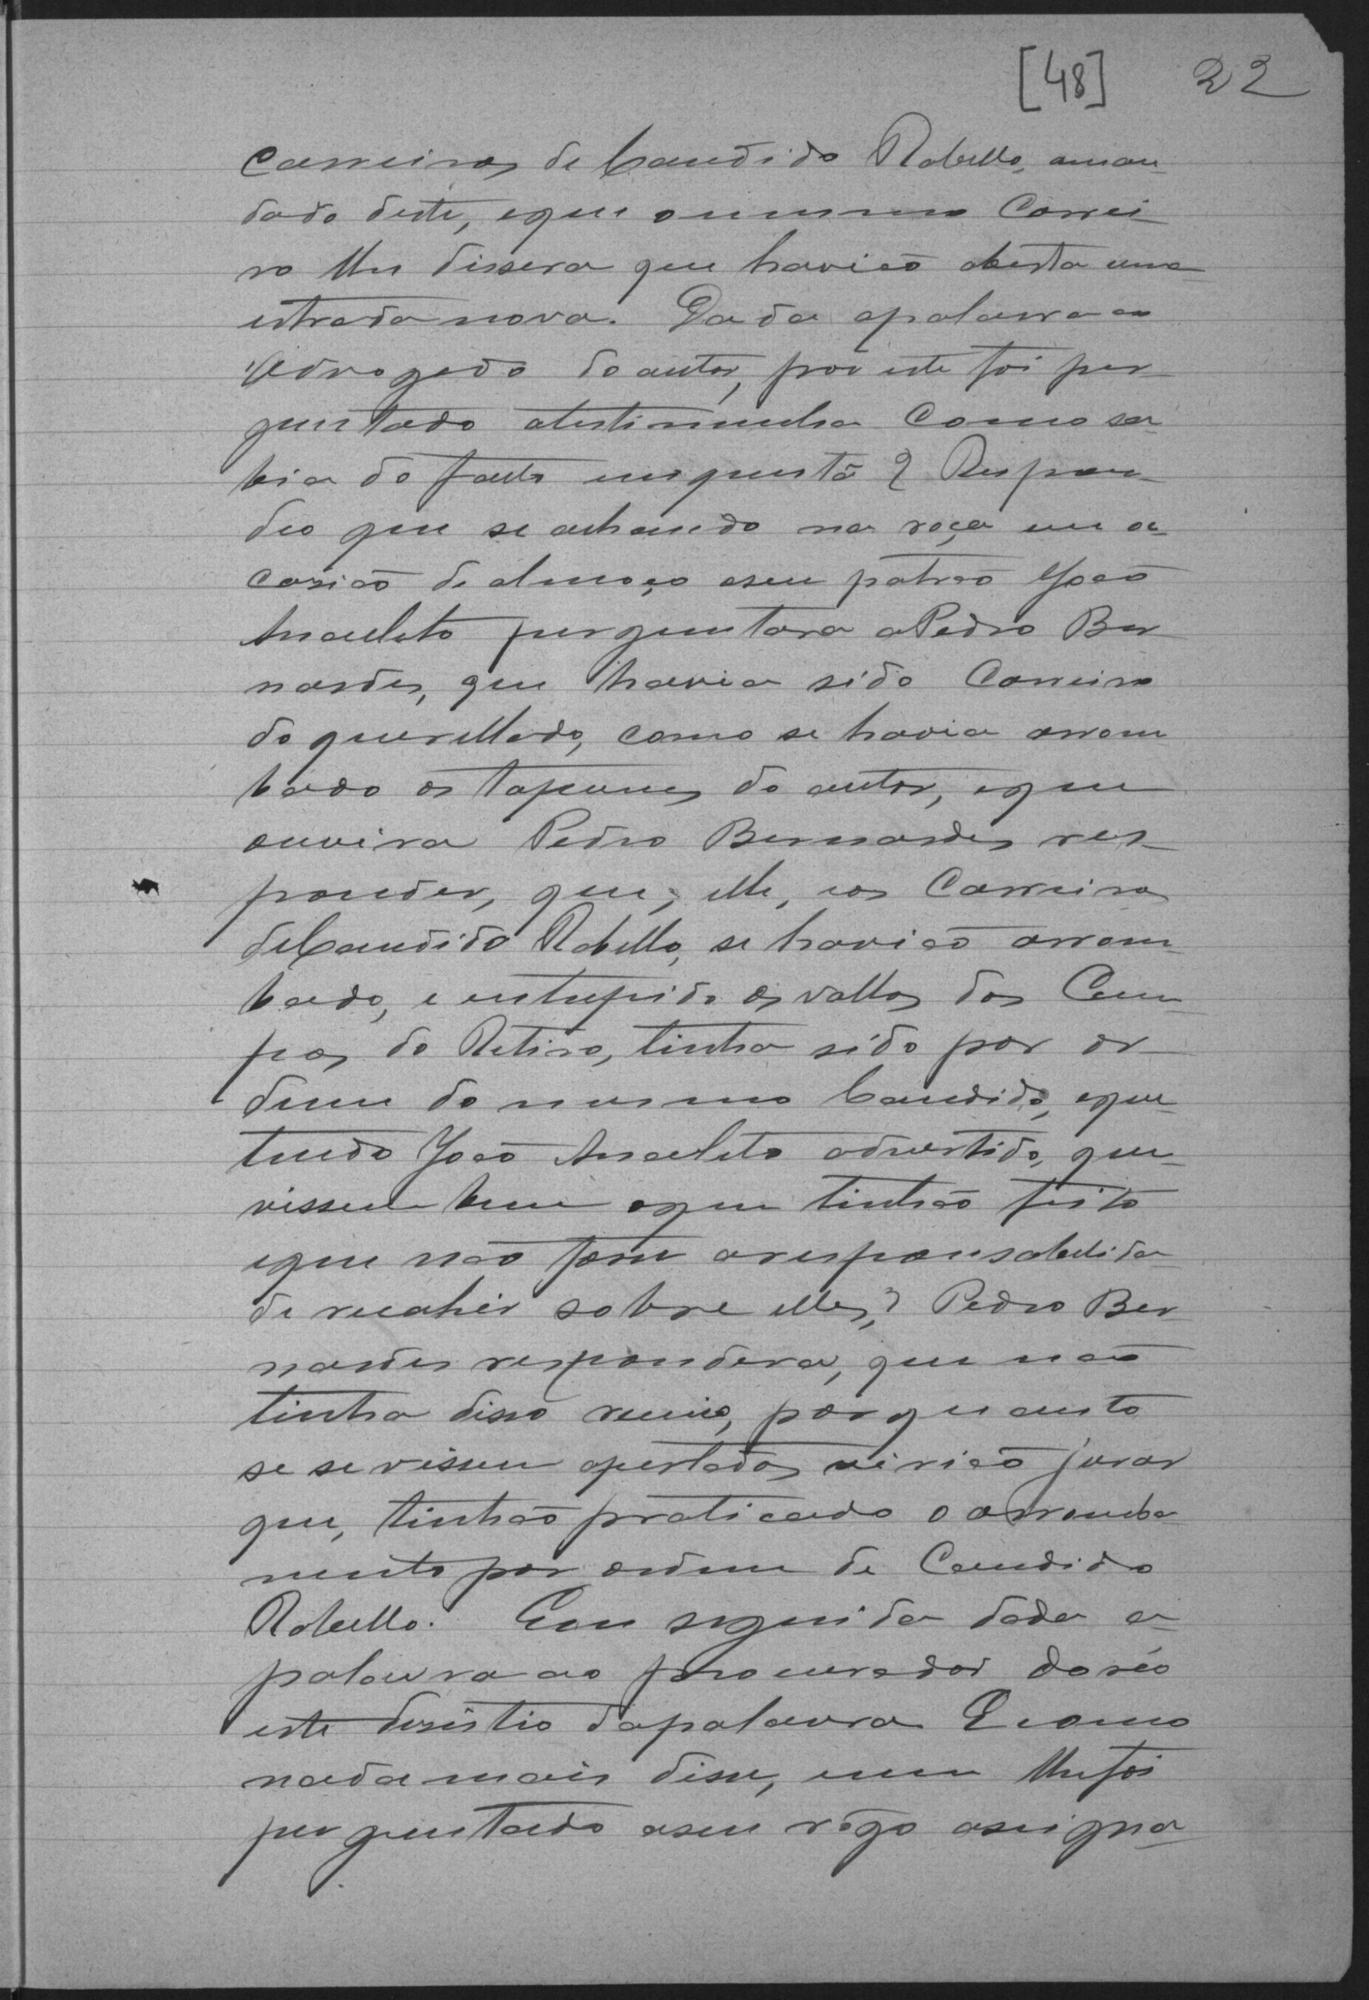 [48] 22
carreiros de Candido Rabello, aman-
dado deste, e que o mesmo Carrei-
ro lhe dissera que havião aberto uma
estrada nova. Dada a palavra ao
Advogado do autor, por este foi per-
guntado a testimunha como sa-
bia do facto em questã? Respon-
deo que se achando na roça em o-
casião de almoço a seu patrão João
Anacleto perguntara a Pedro Ber-
nardes, que havia sido Carreiro
do querellado, como se havia arrom-
bado os tapumes do autor, e que
ouvira Pedro Bernardes res-
ponder, que, elle, e os Carreiros
de Candido Rabello, se havião arrom-
bado, e entupido os vallos dos Cam-
pos do Retiro, tinha sido por or-
dem do mesmo Candido, e que
tendo João Anacleto advertido, que
vissem bem o que tinhão feito
e que não fosse a responsabelida-
de recahir sobre elles? Pedro Ber-
nardes respondera, que não
tinha disso receio, porquanto
se se vissem apertados virião jurar
que, tinhão praticado o arromba-
mento por ordem de Candido
Rabello. Em seguida dada a
palavra ao procurador do réo
este desistio da palavra E como
nada mais disse, nem lhe foi
perguntado a seu rogo assigna